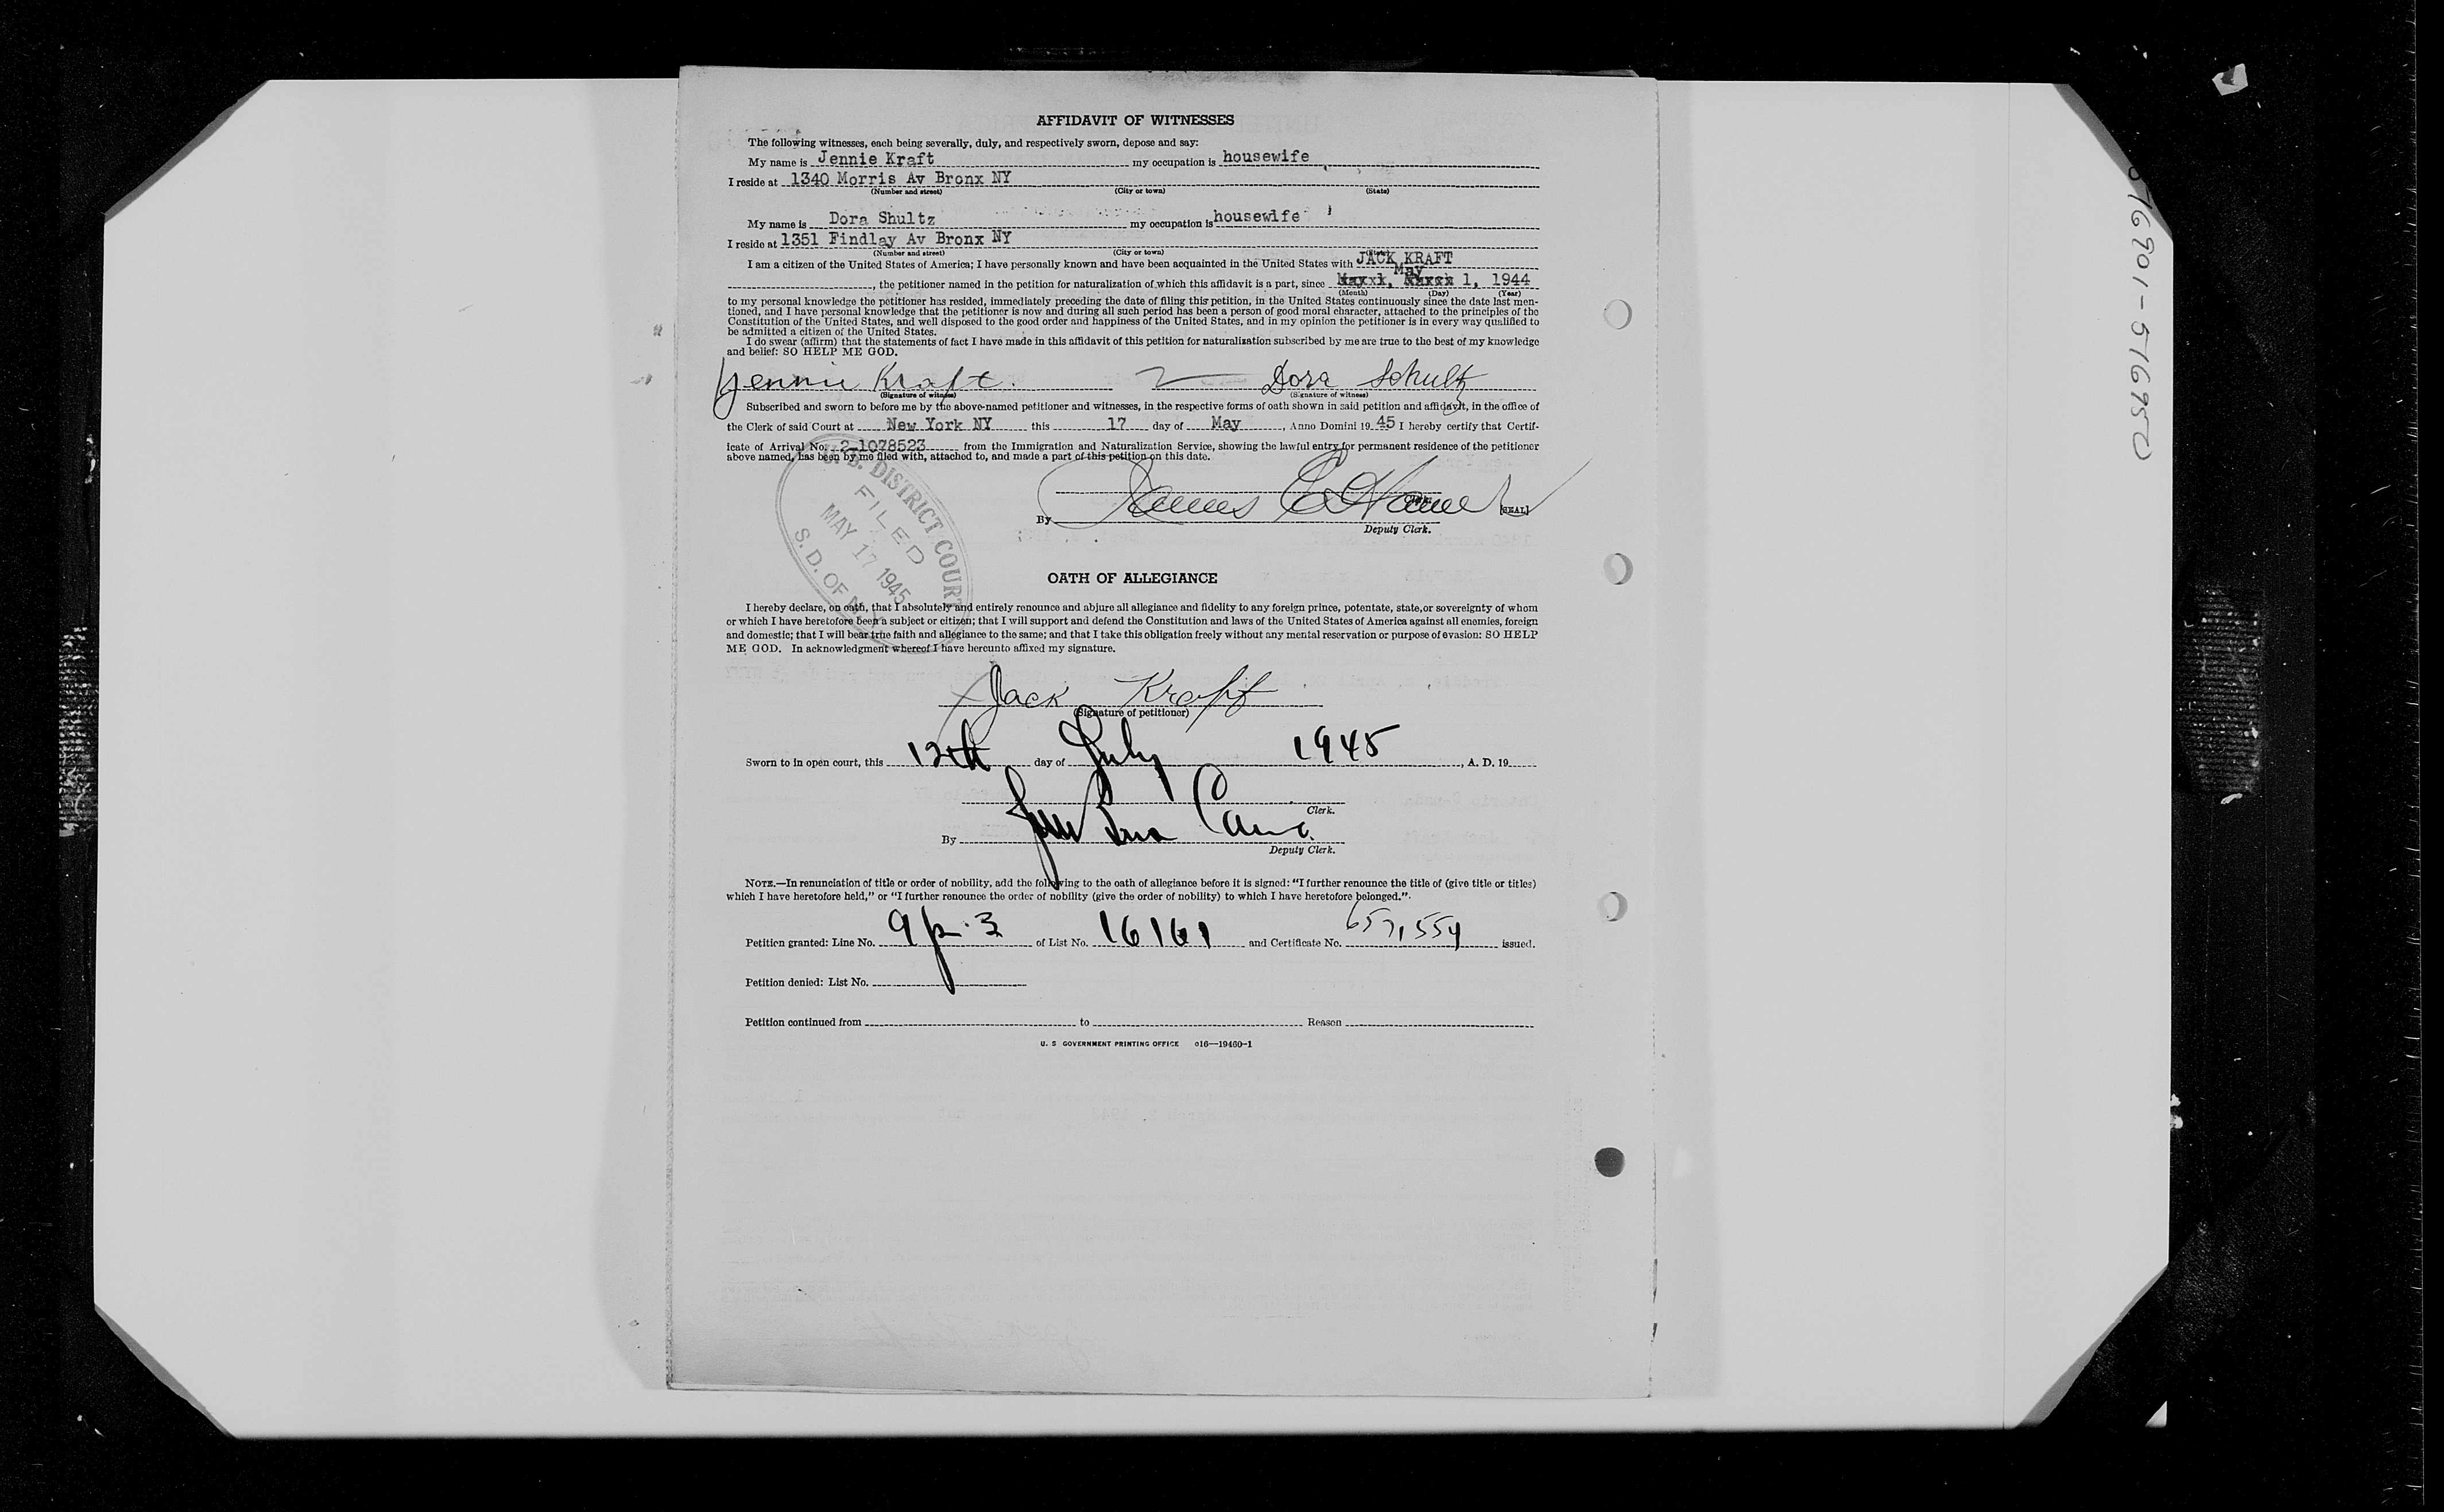 AFFIDAVIT OF WITNESSES
The following witnesses, each being severally, duly, and respectively sworn, depose and say:
My name is Jennie Kraft my occupation is housewife
I reside at 1340 Morris Av Bronx NY
(Number and street) (City or town) (State)
My name is Dora Shultz my occupation is housewife
I reside at 1351 Findlay Av Bronx NY
(Number and street) (City or town) (State)
I am a citizen of the United States of America; I have personally known and have been acquainted in the United States with JACK KRAFT
May
, the petitioner named in the petition for naturalization of which this affidavit is a part, since 1, 1944
(Month) (Day) (Year)
to my personal knowledge the petitioner has resided, immediately preceding the date of filing this petition, in the United States continuously since the date last men-
tioned, and I have personal knowledge that the petitioner is now and during all such period has been a person of good moral character, attached to the principles of the
Constitution of the United States, and well disposed to the good order and happiness of the United States, and in my opinion the petitioner is in every way qualified to
be admitted a citizen of the United States.
I do swear (affirm) that the statements of fact I have made in this affidavit of this petition for naturalization subscribed by me are true to the best of my knowledge
and belief: SO HELP ME GOD.
Jennie Kraft. Dora Schultz
(Signature of witness) (Signature of witness)
Subscribed and sworn to before me by the above-named petitioner and witnesses, in the respective forms of oath shown in said petition and affidavit, in the office of
the Clerk of said Court at New York NY this 17 day of May, Anno Domini 19 45 I hereby certify that Certif-
icate of Arrival No. 2-1078523 from the Immigration and Naturalization Service, showing the lawful entry for permanent residence of the petitioner
above named, has been by me filed with, attached to, and made a part of this petition on this date.
U. S. DISTRICT COURT
FILED
MAY 17 1945
S. D. OF N. Y.
Clerk.
By James [SEAL]
Deputy Clerk.
OATH OF ALLEGIANCE
I hereby declare, on oath, that I absolutely and entirely renounce and abjure all allegiance and fidelity to any foreign prince, potentate, state, or sovereignty of whom
or which I have heretofore been a subject or citizen; that I will support and defend the Constitution and laws of the United States of America against all enemies, foreign
and domestic; that I will bear true faith and allegiance to the same; and that I take this obligation freely without any mental reservation or purpose of evasion: SO HELP
ME GOD. In acknowledgment whereof I have hereunto affixed my signature.
Jack Kraft
(Signature of petitioner)
Sworn to in open court, this 12th day of July 1945, A. D. 19
Clerk.
By
Deputy Clerk.
NOTE.—In renunciation of title or order of nobility, add the following to the oath of allegiance before it is signed: “I further renounce the title of (give title or titles)
which I have heretofore held,” or “I further renounce the order of nobility (give the order of nobility) to which I have heretofore belonged.”
Petition granted: Line No. 9 p. 3 of List No. 16161 and Certificate No. issued.
Petition denied: List No.
Petition continued from to Reason
U. S GOVERNMENT PRINTING OFFICE o16—19460-1
516901-516950